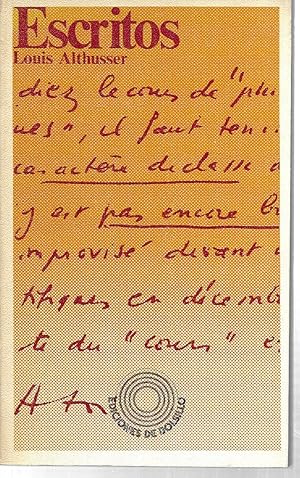 Escritos
Louis Althusser
diez le cours de "phi
ues", il faut ten
caractère de classe d
y est pas encore bi
improvisé devant
tifiques en décemb
te du "cours" e
EDICIONES DE BOLSILLO